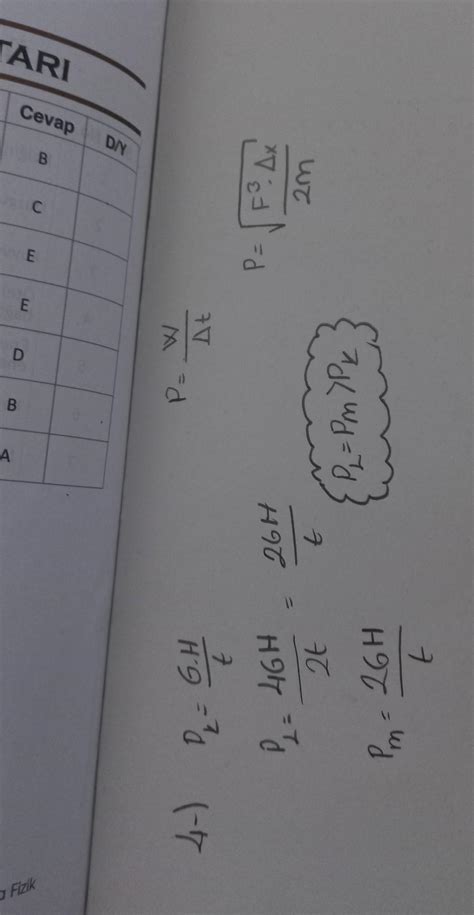 TARI
Cevap D/Y
B
C
E
E
D
B
A
Fizik
4-)
P_K = G.H/t
P_L = 4GH/2t = 2GH/t
P_m = 2GH/t
P_L = P_m > P_K
P = W/Δt
P = √(F³.Δx/2m)